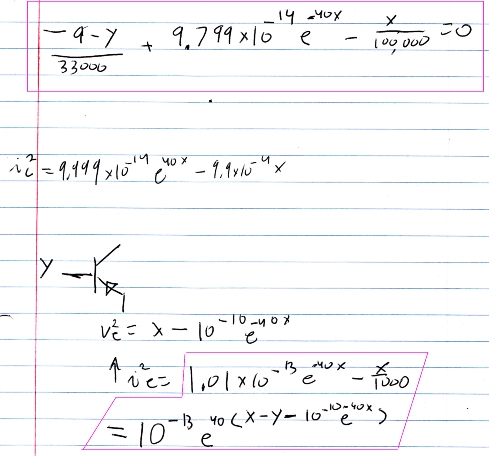 (-9-y)/33000 + 9.799x10^-14 e^-40x - x/100,000 = 0
i_c^2 = 9,999x10^-14 e^40x - 9,9x10^-4 x
y
v_c^2 = x - 10^-10 e^-40x
↑ i_e^2 = 1.01x10^-13 e^-40x - x/1000
= 10^-13 e^40(x-y-10^-10 e^-40x)